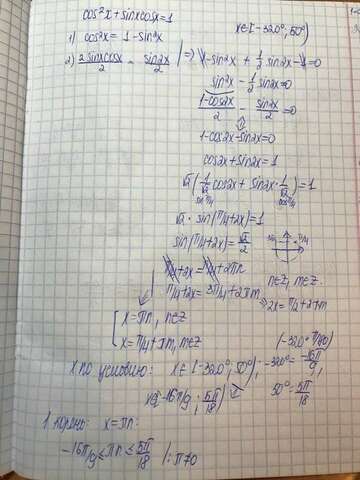 cos²x + sinxcosx = 1
x∈[-320°; 50°)
1) cos²x = 1 - sin²x
2) 2sinxcosx/2 = sin2x/2 | => 1 - sin²x + 1/2 sin2x - 1 = 0
sin²x - 1/2 sin2x = 0
1-cos2x/2 - sin2x/2 = 0
1 - cos2x - sin2x = 0
cos2x + sin2x = 1
√2(1/√2 cos2x + sin2x · 1/√2) = 1
sin π/4 cos π/4
√2 · sin(π/4 + 2x) = 1
sin(π/4 + 2x) = √2/2
π/4 + 2x = π/4 + 2πn
n∈z, m∈z
π/4 + 2x = 3π/4 + 2πm => 2x = π/4 + 2πm
x = πn, n∈z
x = π/4 + πm, m∈z
(-320° · π/180)
x по условию: x∈[-320°; 50°); -320° = -16π/9,
x∈[-16π/9; 5π/18) 50° = 5π/18
1 корень: x = πn:
-16π/9 ≤ πn ≤ 5π/18 |: π>0